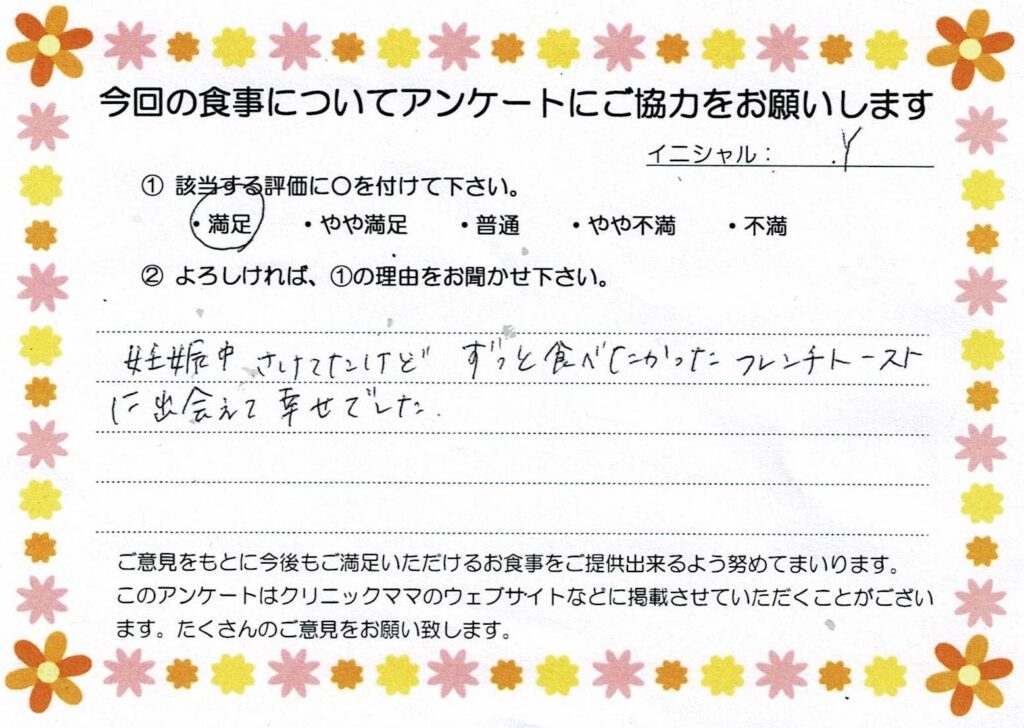 今回の食事についてアンケートにご協力をお願いします
イニシャル： .Y
① 該当する評価に〇を付けて下さい。
・満足 ・やや満足 ・普通 ・やや不満 ・不満
② よろしければ、①の理由をお聞かせ下さい。
妊娠中 さけてたけど ずっと食べたかった フレンチトースト
に出会えて幸せでした.
ご意見をもとに今後もご満足いただけるお食事をご提供出来るよう努めてまいります。
このアンケートはクリニックママのウェブサイトなどに掲載させていただくことがござい
ます。たくさんのご意見をお願い致します。